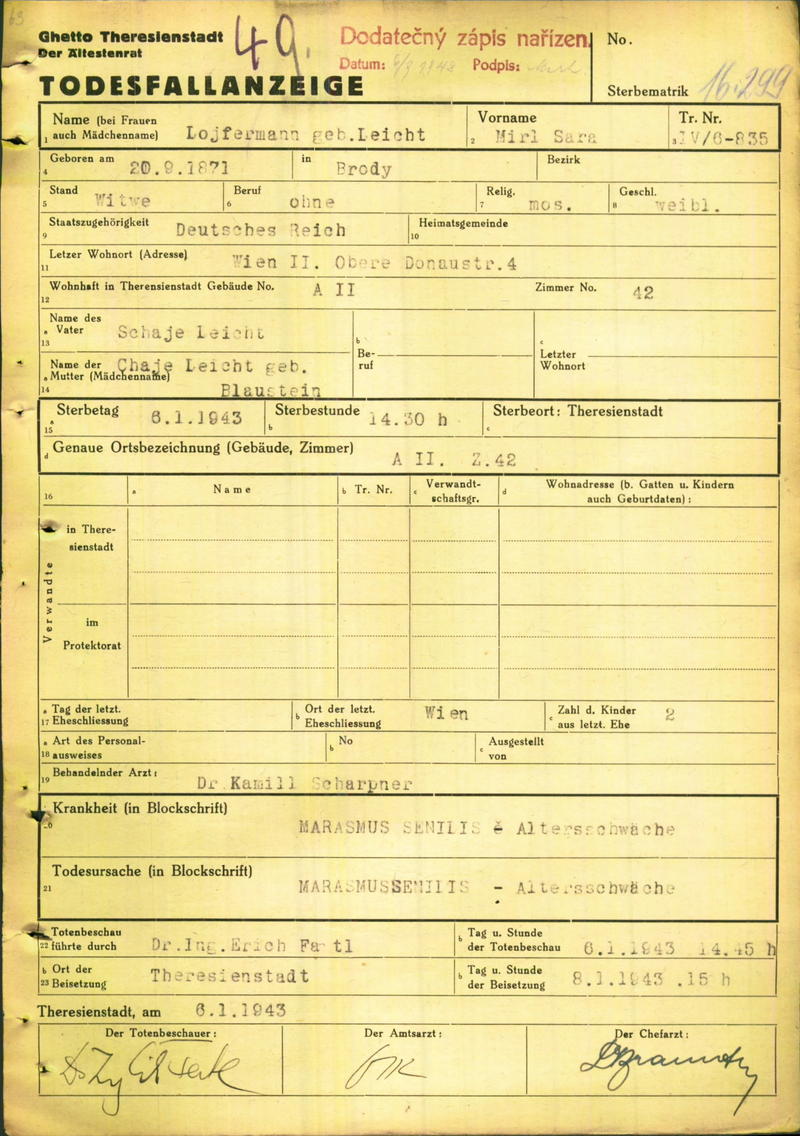 63
Ghetto Theresienstadt
Der Ältestenrat
49.
Dodatečný zápis nařízen.
Datum: Podpis:
No.
TODESFALLANZEIGE
Sterbematrik 16.299
Name (bei Frauen
1 auch Mädchenname) Lojfermann geb.Leicht
Vorname
2 Mirl Sara
Tr. Nr.
3 IV/6-835
Geboren am
4 20.9.1871
in
Brody
Bezirk
Stand
5 Witwe
Beruf
6 ohne
Relig.
7 mos.
Geschl.
8 weibl.
Staatszugehörigkeit
9 Deutsches Reich
Heimatsgemeinde
10
Letzer Wohnort (Adresse)
11 Wien II. Obere Donaustr.4
Wohnhaft in Theresienstadt Gebäude No. A II
12
Zimmer No. 42
Name des
a Vater Schaje Leicht
13
b
Be-
ruf
c
Letzter
Wohnort
Name der Chaje Leicht geb.
a Mutter (Mädchenname)
14 Blaustein
a Sterbetag 6.1.1943
15
Sterbestunde
b 14.30 h
Sterbeort: Theresienstadt
c
d Genaue Ortsbezeichnung (Gebäude, Zimmer)
A II. Z.42
16
a Name
b Tr. Nr.
c Verwandt-
schaftsgr.
d Wohnadresse (b. Gatten u. Kindern
auch Geburtdaten) :
Verwandte
in There-
sienstadt
im
Protektorat
a Tag der letzt.
17 Eheschliessung
b Ort der letzt.
Eheschliessung Wien
c Zahl d. Kinder
aus letzt. Ehe 2
a Art des Personal-
18 ausweises
b No
c Ausgestellt
von
19 Behandelnder Arzt :
Dr.Kamill Scharpner
Krankheit (in Blockschrift)
20 MARASMUS SENILIS - Altersschwäche
Todesursache (in Blockschrift)
21 MARASMUSSENILIS - Altersschwäche
a Totenbeschau
22 führte durch Dr.Ing.Erich
b Tag u. Stunde
der Totenbeschau 6.1.1943 14.45 h
b Ort der
23 Beisetzung Theresienstadt
b Tag u. Stunde
der Beisetzung 8.1.1943 .15 h
Theresienstadt, am 6.1.1943
Der Totenbeschauer :
Der Amtsarzt :
Der Chefarzt :